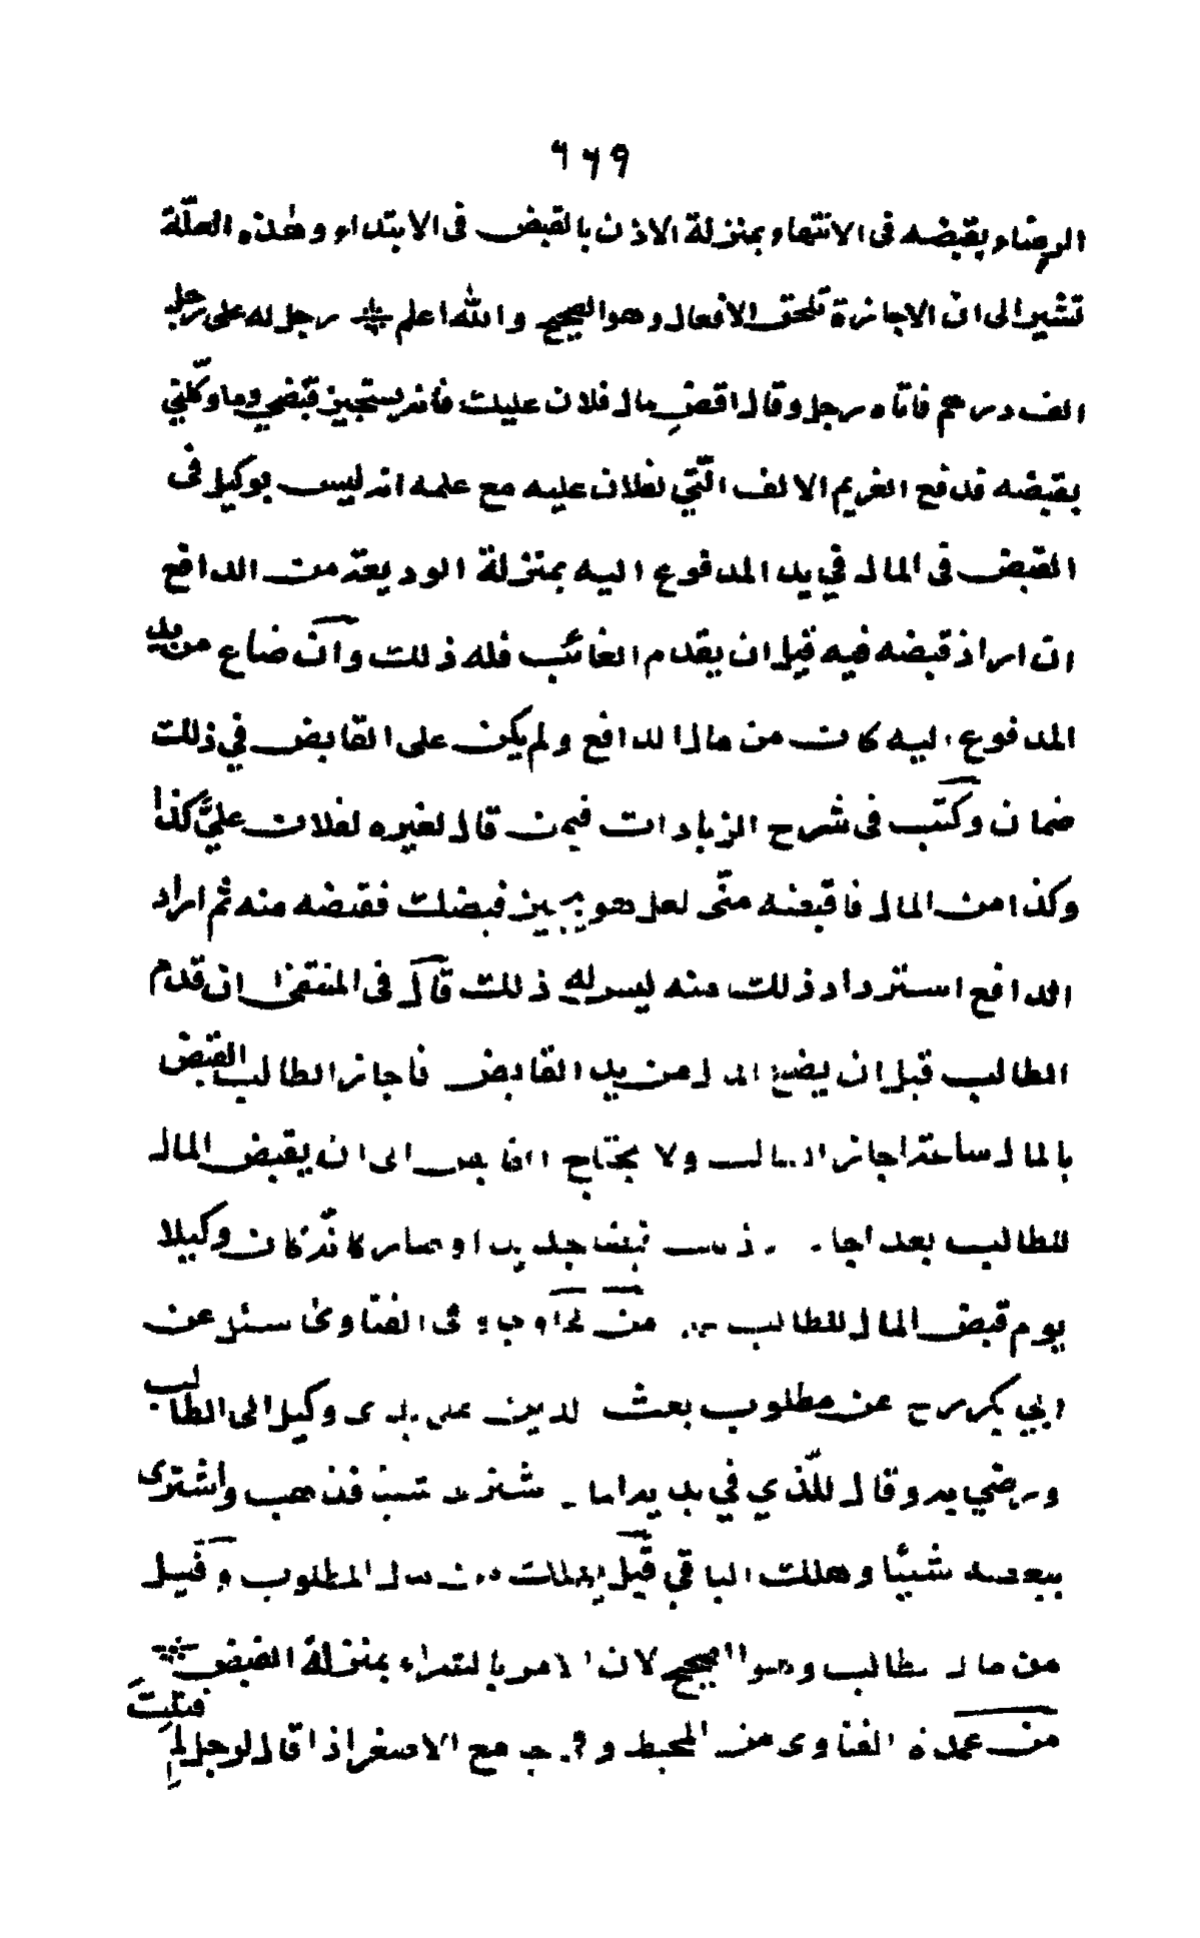 ٦٦٩
الرضاء بقبضه فى الانتهاء بمنزلة الاذن بالقبض فى الابتداء وهذه العلّة
تشير الى انّ الاجازة تلحق الافعال وهو الصحيح والله اعلم رجل له على رجل
الف درهم فاتاه رجل وقال اقض مال فلان عليك فانه يستجيز قبضي وما وكلني
بقبضه فدفع الغريم الالف الّتي لفلان عليه مع علمه انه ليس بوكيل فى
القبض فى المال في يد المدفوع اليه بمنزلة الوديعة من الدافع
ان اراد قبضه فيه قبل ان يقدم الغائب فله ذلك وان ضاع من يد
المدفوع اليه كان من مال الدافع ولم يكن على القابض في ذلك
ضمان وكتب فى شرح الزيادات فيمن قال لغيره لفلان عليَّ كذا
وكذا من المال فاقبضه منّى لعل هو يجيز قبضك فقبضه منه ثم اراد
الدافع استرداد ذلك منه ليس له ذلك قال فى المنتقى ان قدم
الطالب قبل ان يضيع المال من يد القابض فاجاز الطالب القبض
بالمال ساعة اجاز الطالب ولا يحتاج القابض الى ان يقبض المال
للطالب بعد اجازة ذلك قبضا جديدا وصار كانّه كان وكيلا
يوم قبض المال للطالب من فى الفتاوى سئل عن
ابي بكر رح عن مطلوب بعث الدين على يدى وكيل الى الطالب
ورضي به وقال للّذي في يديه اشتر به شيئا فذهب واشترى
ببعضه شيئا وهلك الباقي قيل يهلك من مال المطلوب وقيل
من مال الطالب وهو الصحيح لان الامر بالشراء بمنزلة القبض
من عمدة الفتاوى من المحيط وفى جامع الاصغر اذا قال لرجل لم
قبلت